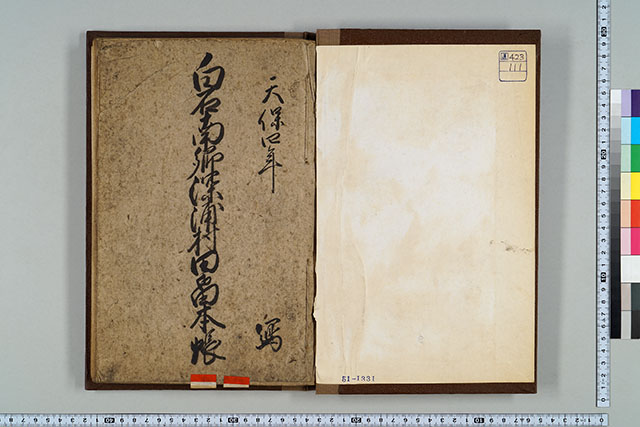 天保四年
白石南郷深浦村田畠本帳
寫
423
111
51-1331